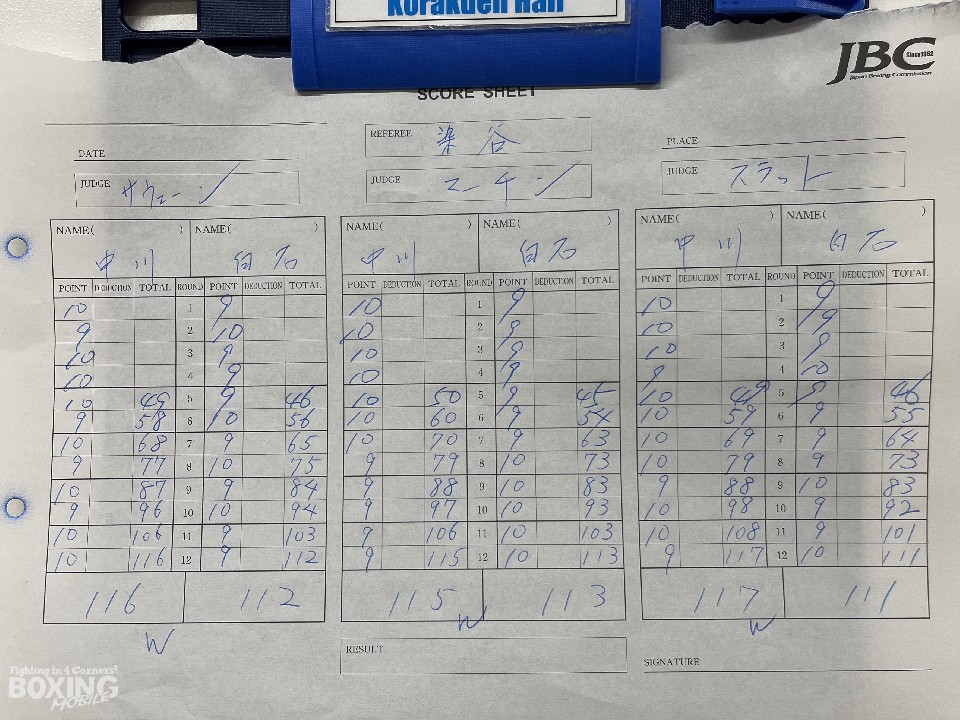 Korakuen Hall
JBC
Since1952
Japan Boxing Commission
SCORE SHEET
DATE
REFEREE 染谷
PLACE
JUDGE サウェーン JUDGE マーチン JUDGE スラット
NAME( ) NAME( ) NAME( ) NAME( ) NAME( ) NAME( )
中川 白石 中川 白石 中川 白石
POINT DEDUCTION TOTAL ROUND POINT DEDUCTION TOTAL POINT DEDUCTION TOTAL ROUND POINT DEDUCTION TOTAL POINT DEDUCTION TOTAL ROUND POINT DEDUCTION TOTAL
10 1 9 10 1 9 10 1 9
9 2 10 10 2 9 10 2 9
10 3 9 10 3 9 10 3 9
10 4 9 10 4 9 9 4 10
10 49 5 9 46 10 50 5 9 45 10 49 5 9 46
9 58 6 10 56 10 60 6 9 54 10 59 6 9 55
10 68 7 9 65 10 70 7 9 63 10 69 7 9 64
9 77 8 10 75 9 79 8 10 73 10 79 8 9 73
10 87 9 9 84 9 88 9 10 83 9 88 9 10 83
9 96 10 10 94 9 97 10 10 93 10 98 10 9 92
10 106 11 9 103 9 106 11 10 103 10 108 11 9 101
10 116 12 9 112 9 115 12 10 113 9 117 12 10 111
116 112 115 113 117 111
W W W
RESULT
SIGNATURE
Fighting in 4 Corners!
BOXING
MOBILE